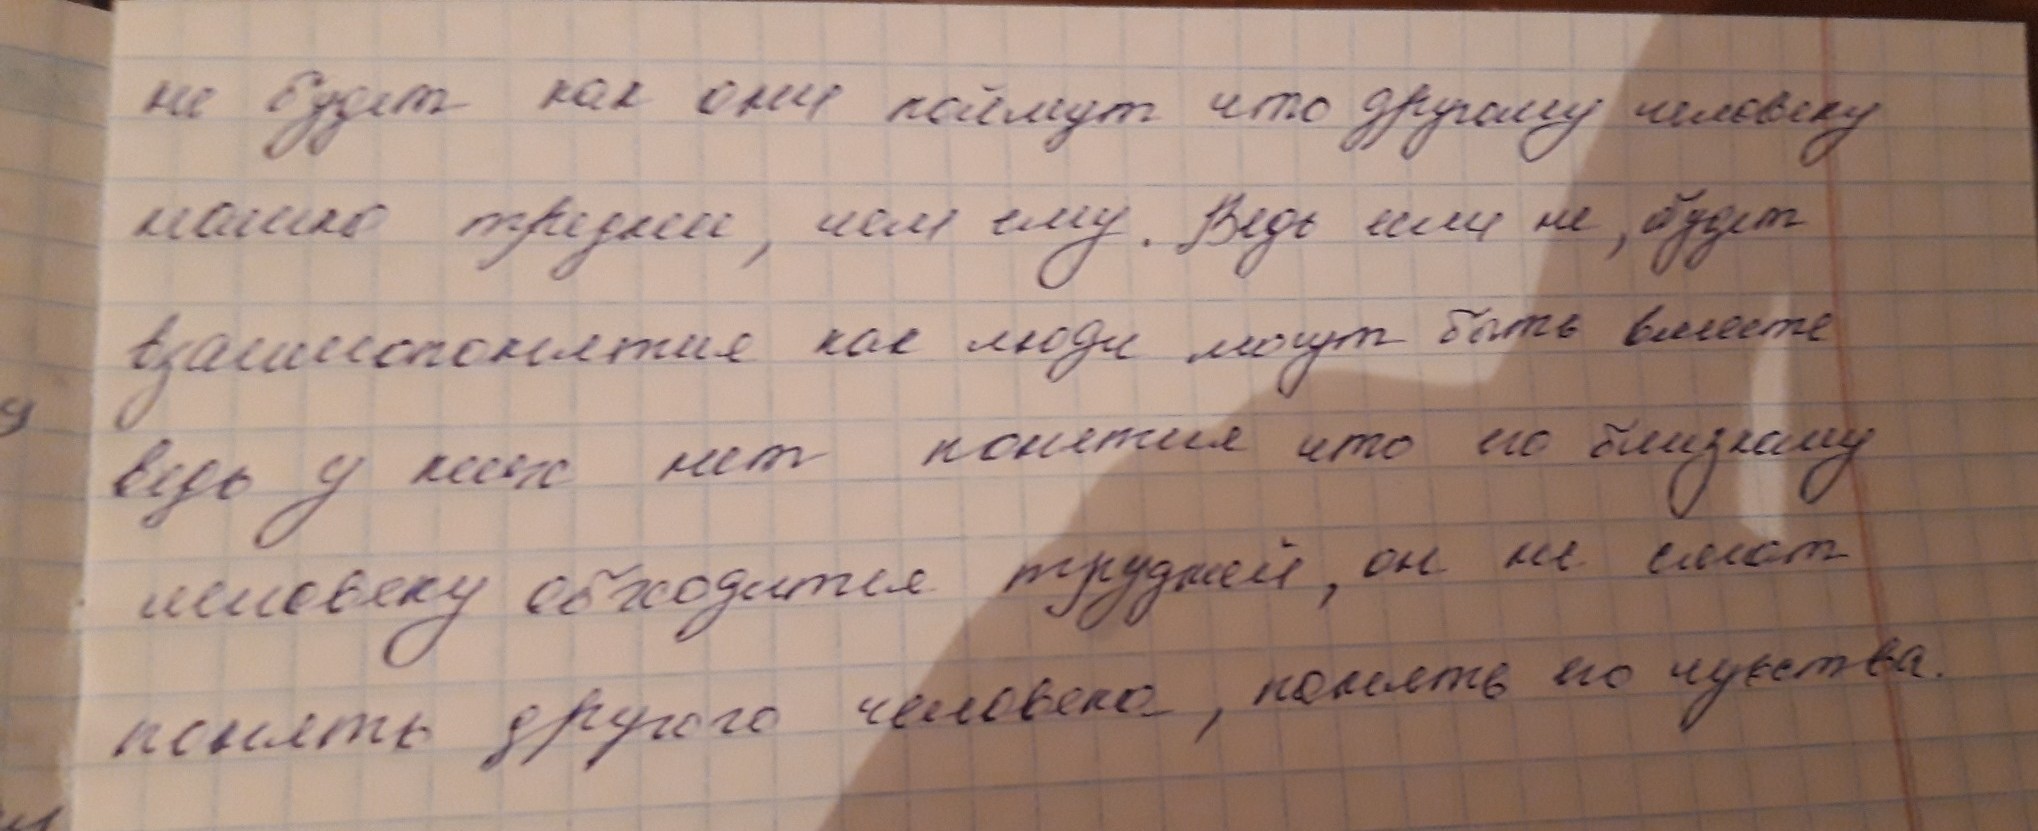 не будет как они поймут что другому человеку
трудней, чем ему. Ведь если не, будет
взаимопонятия как люди могут быть вместе
ведь у них нет понятия что его близкому
человеку обходится трудней, он не смот
понять другого человека, понять его чувства.